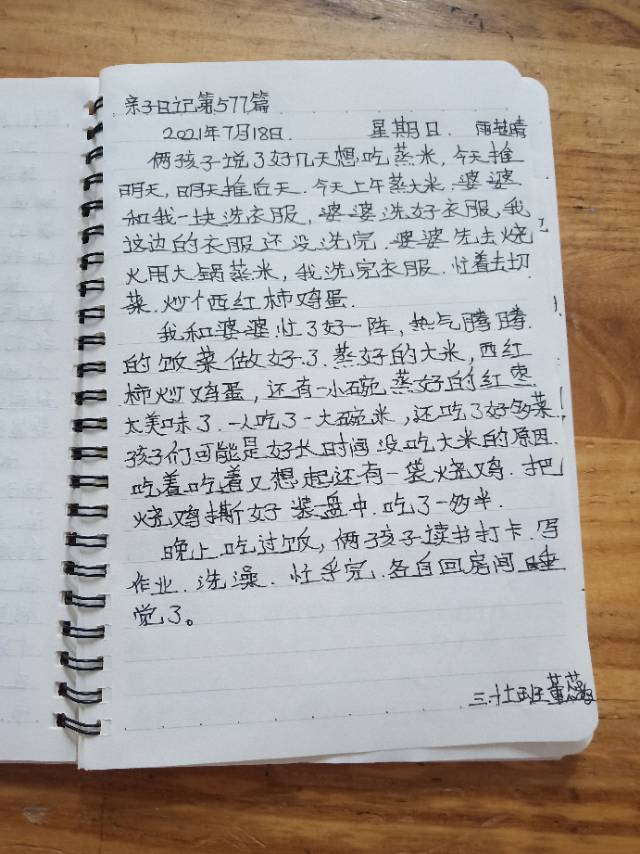 亲子日记第577篇
2021年7月18日 星期日 雨转晴
俩孩子说了好几天想吃蒸米,今天推
明天,明天推后天.今天上午蒸大米.婆婆
和我一块洗衣服,婆婆洗好衣服,我
这边的衣服还没洗完.婆婆先去烧
火用大锅蒸米,我洗完衣服.忙着去切
菜.炒个西红柿鸡蛋.
我和婆婆忙了好一阵,热气腾腾
的饭菜做好了.蒸好的大米,西红
柿炒鸡蛋,还有一小碗蒸好的红枣.
太美味了.一人吃了一大碗米,还吃了好多菜!
孩子们可能是好长时间没吃大米的原因.
吃着吃着又想起还有一袋烧鸡.把
烧鸡撕好装盘中.吃了一多半.
晚上吃过饭,俩孩子读书打卡.写
作业.洗澡.忙乎完.各自回房间睡
觉了。
三.十五班董